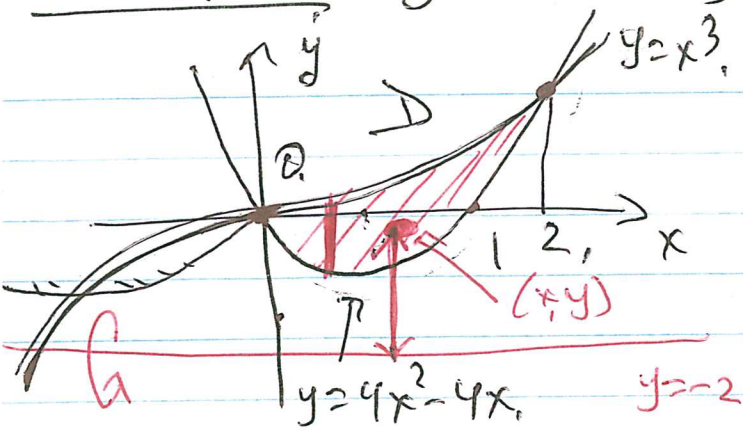 y
y=x³.
D
0.
1
2,
x
(x,y)
y=4x²-4x,
y=-2